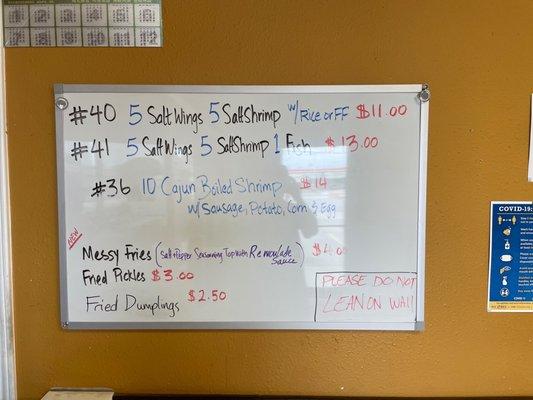 #40 5 Salt Wings 5 Salt Shrimp w/ Rice or FF $11.00
#41 5 Salt Wings 5 Salt Shrimp 1 Fish $13.00
#36 10 Cajun Boiled Shrimp $14
w/ Sausage, Potato, Corn & Egg
NEW
Messy Fries (Salt & Pepper Seasoning Top With Remoulade Sauce) $4.00
Fried Pickles $3.00
Fried Dumplings $2.50
PLEASE DO NOT
LEAN ON WALL
COVID-19